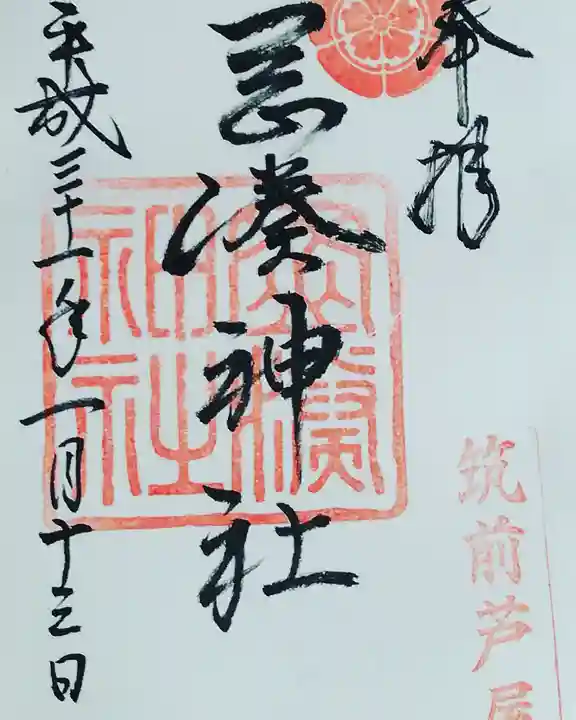 奉拝
筑前芦屋
岡湊神社
岡湊神社
平成三十一年一月十三日